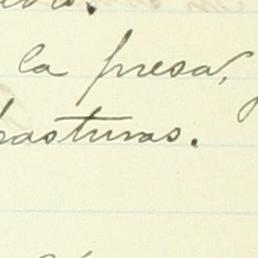 la presa,
pasturas.